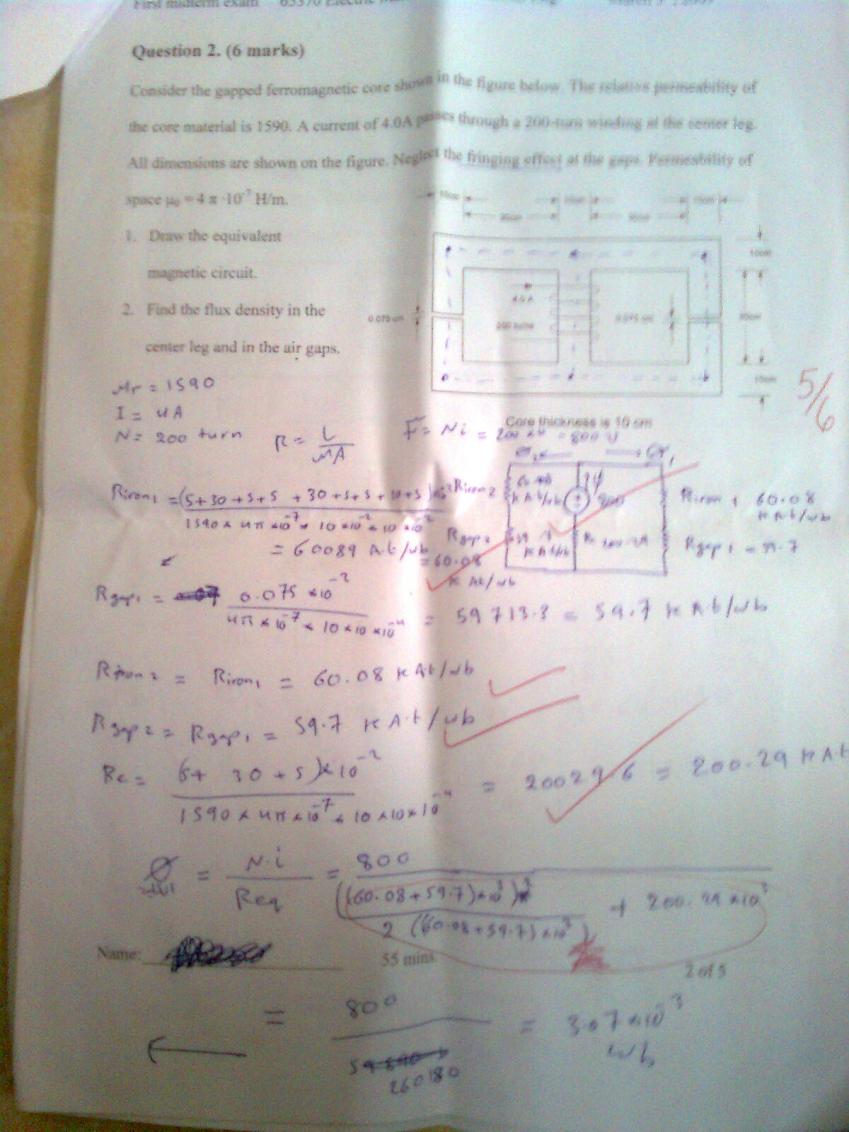 First midterm exam 63370 Electric
Question 2. (6 marks)
Consider the gapped ferromagnetic core shown in the figure below. The relative permeability of
the core material is 1590. A current of 4.0A passes through a 200-turn winding at the center leg.
All dimensions are shown on the figure. Neglect the fringing effect at the gaps. Permeability of
space μ0 = 4 π ·10⁻⁷ H/m.
1. Draw the equivalent
magnetic circuit.
2. Find the flux density in the
center leg and in the air gaps.
10cm
0.075 cm
4.0 A
200 turns
0.075 cm
30cm
10cm
Core thickness is 10 cm
5/6
Mr = 1590
I = 4A
N = 200 turn
R = L/MA
F = Ni = 200 x 4 = 800
Riron1 = (5+30+5+5+30+5+5+30+5) x10⁻²
1590 x 4π x10⁻⁷ x 10 x10⁻² x 10 x10⁻²
= 60089 A.t/wb
= 60.08
K At/wb
Riron2
Rgap2
60.08
K A.t/wb
59.7
K A.t/wb
800
Riron1 60.08
K A.t/wb
Rgap1 = 59.7
Rgap1 = 0.075 x10⁻²
4π x 10⁻⁷ x 10 x10 x10⁻⁴ = 59713.3 = 59.7 K A.t/wb
Riron2 = Riron1 = 60.08 K At/wb
Rgap2 = Rgap1 = 59.7 K A.t/wb
Rc = (5+ 30 +5) x10⁻²
1590 x 4π x10⁻⁷ x 10 x10 x10⁻⁴ = 20029.6 = 200.29 K A.t
Ø = N.i/Req = 800
((60.08+59.7) x10³)²
2 (60.08+59.7) x10³ + 200.29 x10³
Name:
55 mins
2 of 5
= 800
260180
= 3.07 x10⁻³
wb